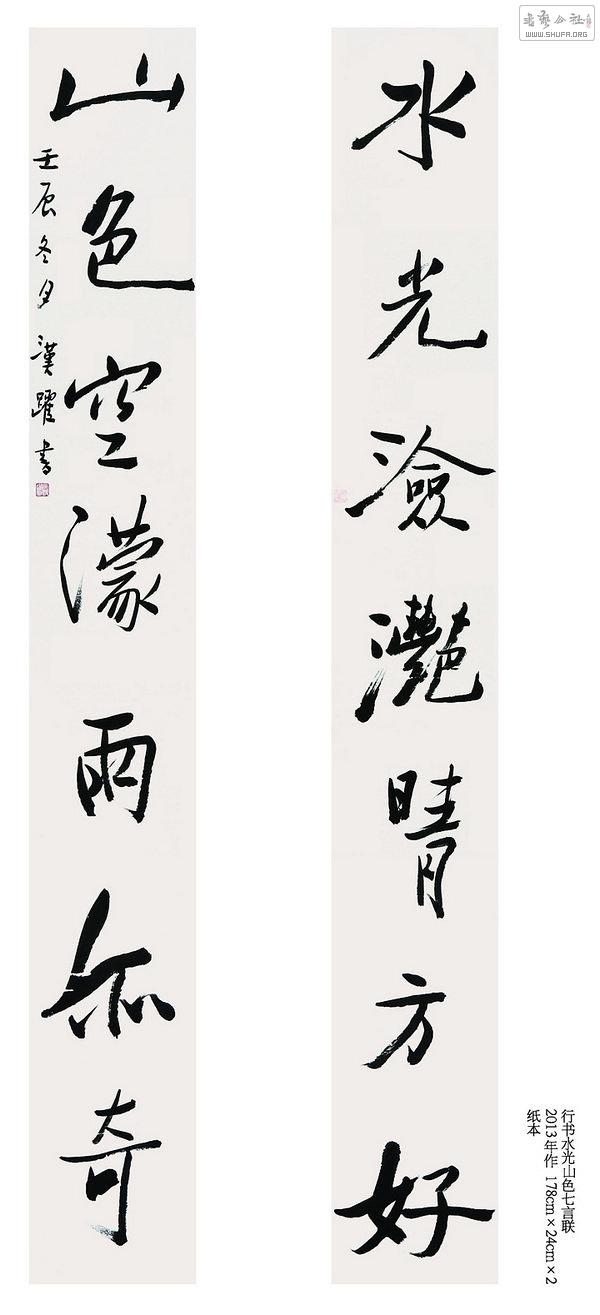 水光潋灩晴方好
山色空濛雨亦奇
壬辰冬月漢躍書
行书水光山色七言联
2013年作 178cm×24cm×2
纸本
书艺公社
WWW.SHUFA.ORG